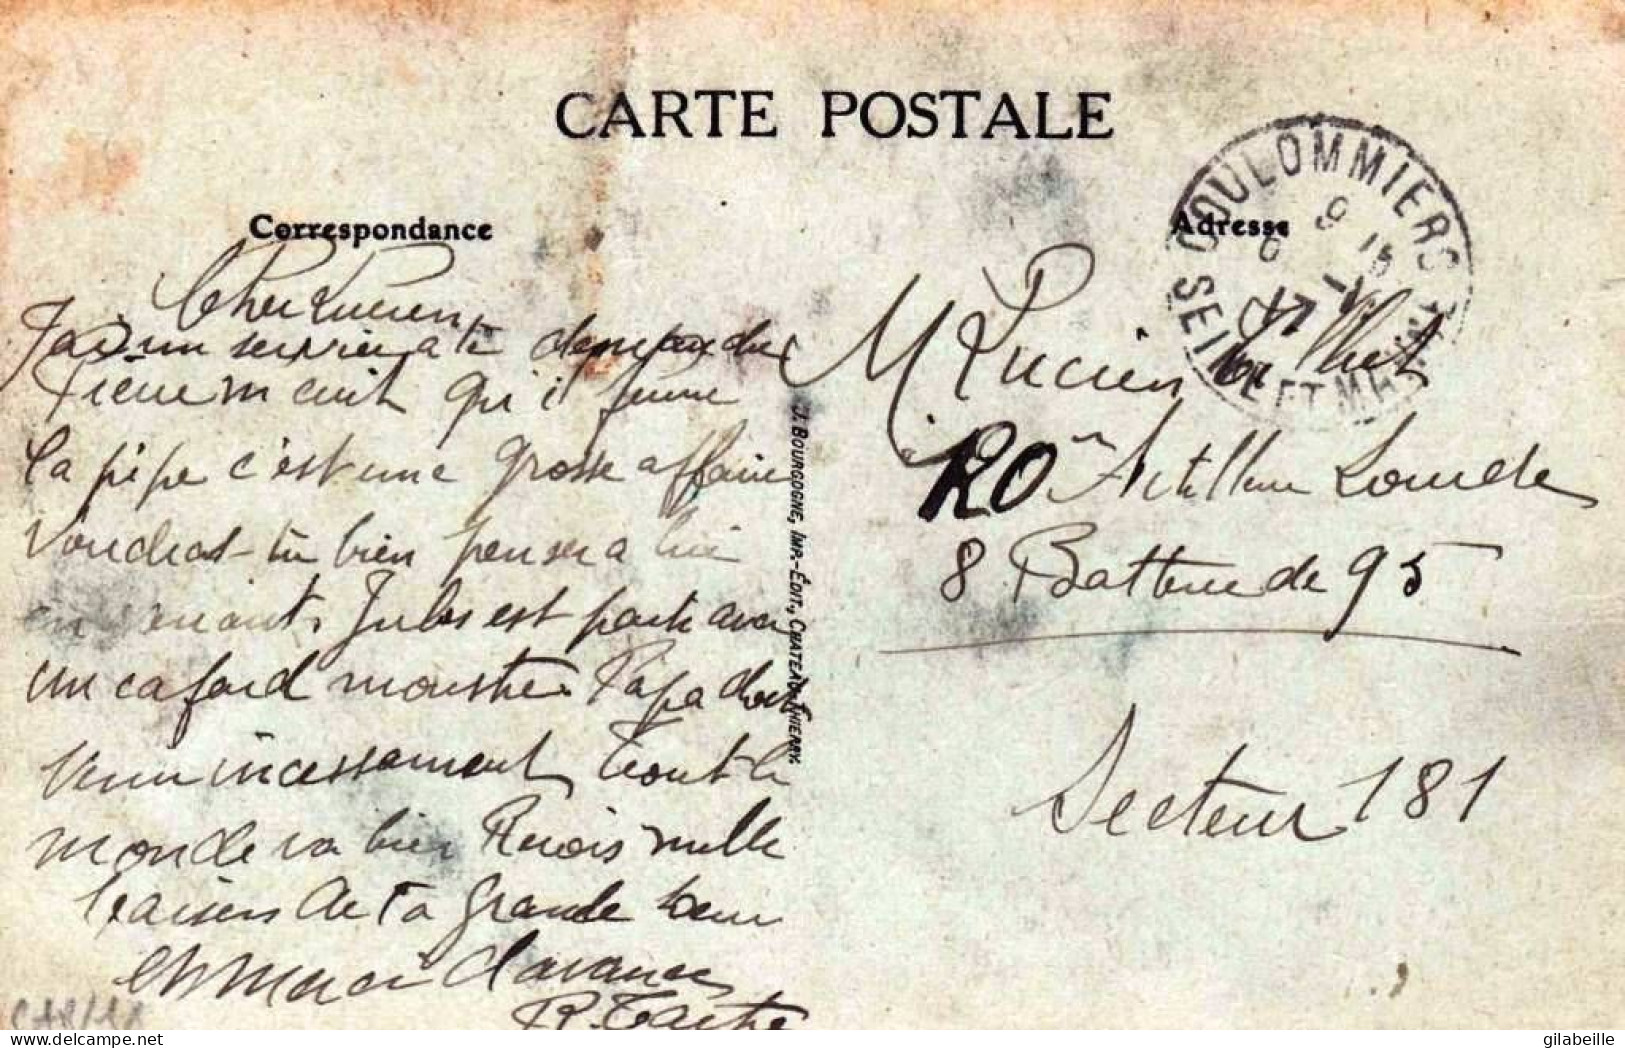 CARTE POSTALE
Correspondance
Cher Lucien
J'ai un service a te demander
Pierre m'écrit qu'il fume
la pipe c'est une grosse affaire
Voudrais-tu bien penser a lui
Jules est parti avec
un cafard monstre Papa doit
venir incessament Tout le
monde va bien Reçois mille
baisers de ta grande soeur
et merci d'avance
R.
J. BOURGOGNE, IMP.-ÉDIT., CHATEAU-THIERRY.
Adresse
COULOMMIERS
SEINE ET MARNE
M Lucien
20 Artillerie Lourde
8 Batterie de 95
Secteur 181
gilabeille